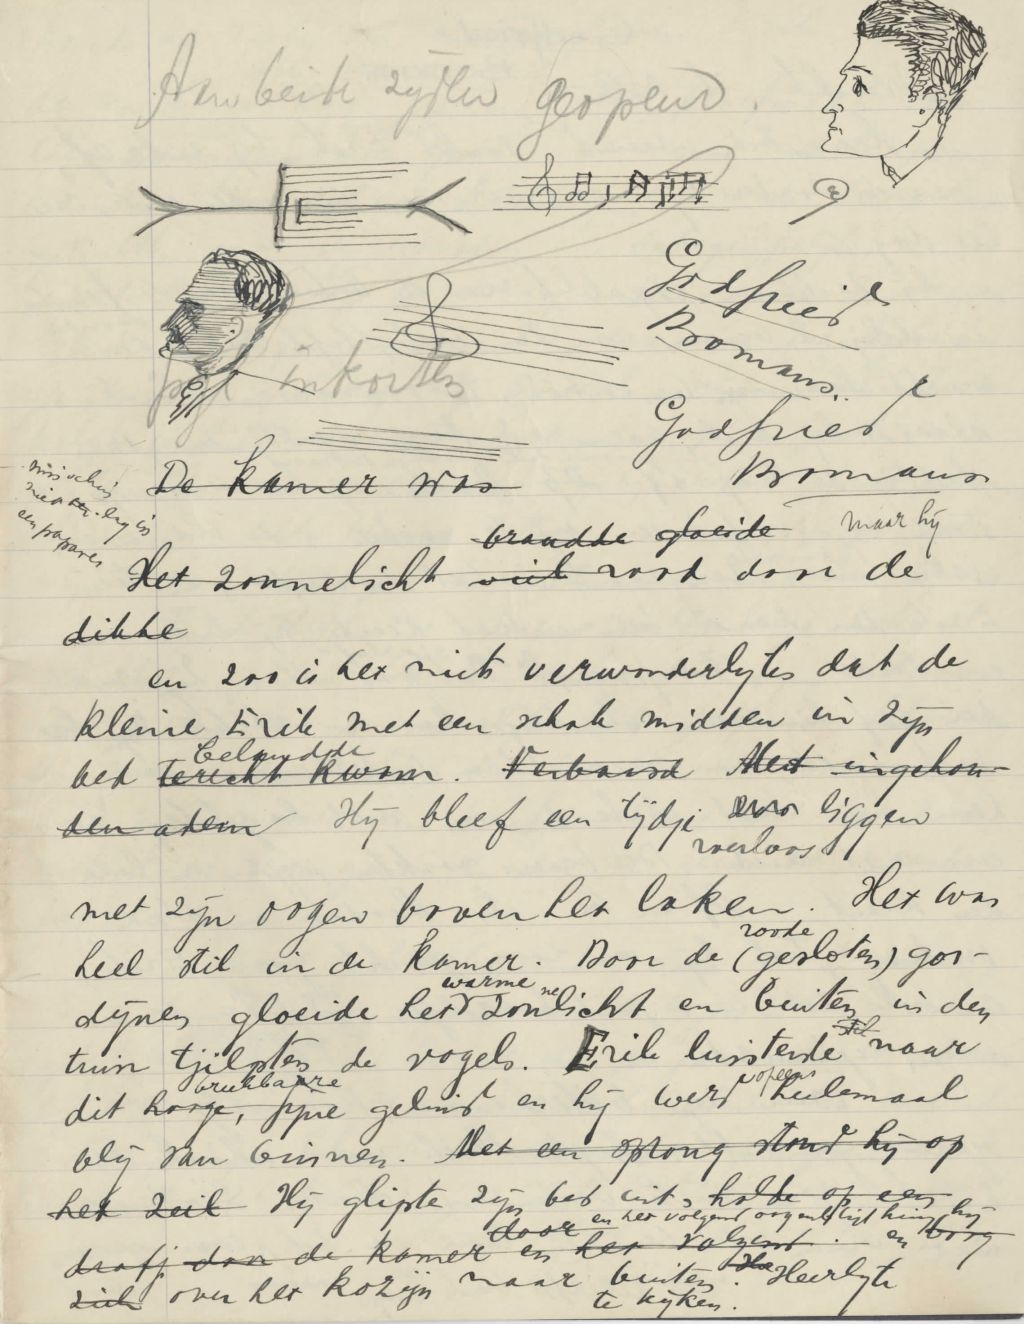 Aan beide zijden geopend.
Godfried
Bomans.
inkorten
Godfried
Bomans
De kamer was
misschien
niet
een
brandde gloeide
maar hij
Het zonnelicht viel rood door de
dikke
en zoo is het niets verwonderlijks dat de
kleine Erik met een schok midden in zijn
belandde
bed terecht kwam. Verbaasd Met ingehou-
den adem Hij bleef een tijdje liggen
roerloos
met zijn oogen boven het laken. Het was
roode
heel stil in de kamer. Door de (gesloten) gor-
warme ne
dijnen gloeide het zonlicht en buiten in den
stil
tuin tjilpten de vogels. Erik luisterde naar
breekbare opeens
dit hooge, fijne geluid en hij werd heelemaal
blij van binnen. Met een sprong stond hij op
het zeil Hij glipte zijn bed uit, holde op een
door en het volgend oogenblik hing hij
drafje dan de kamer en het volgend en boog
zich over het kozijn naar buiten. Heerlijk
te kijken.